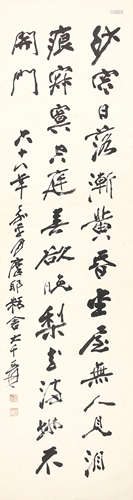 紗窗日落漸黃昏金屋無人見淚
痕寂寞空庭春欲晚梨花滿地不
開門
六十八年月摩耶精舍大千爰